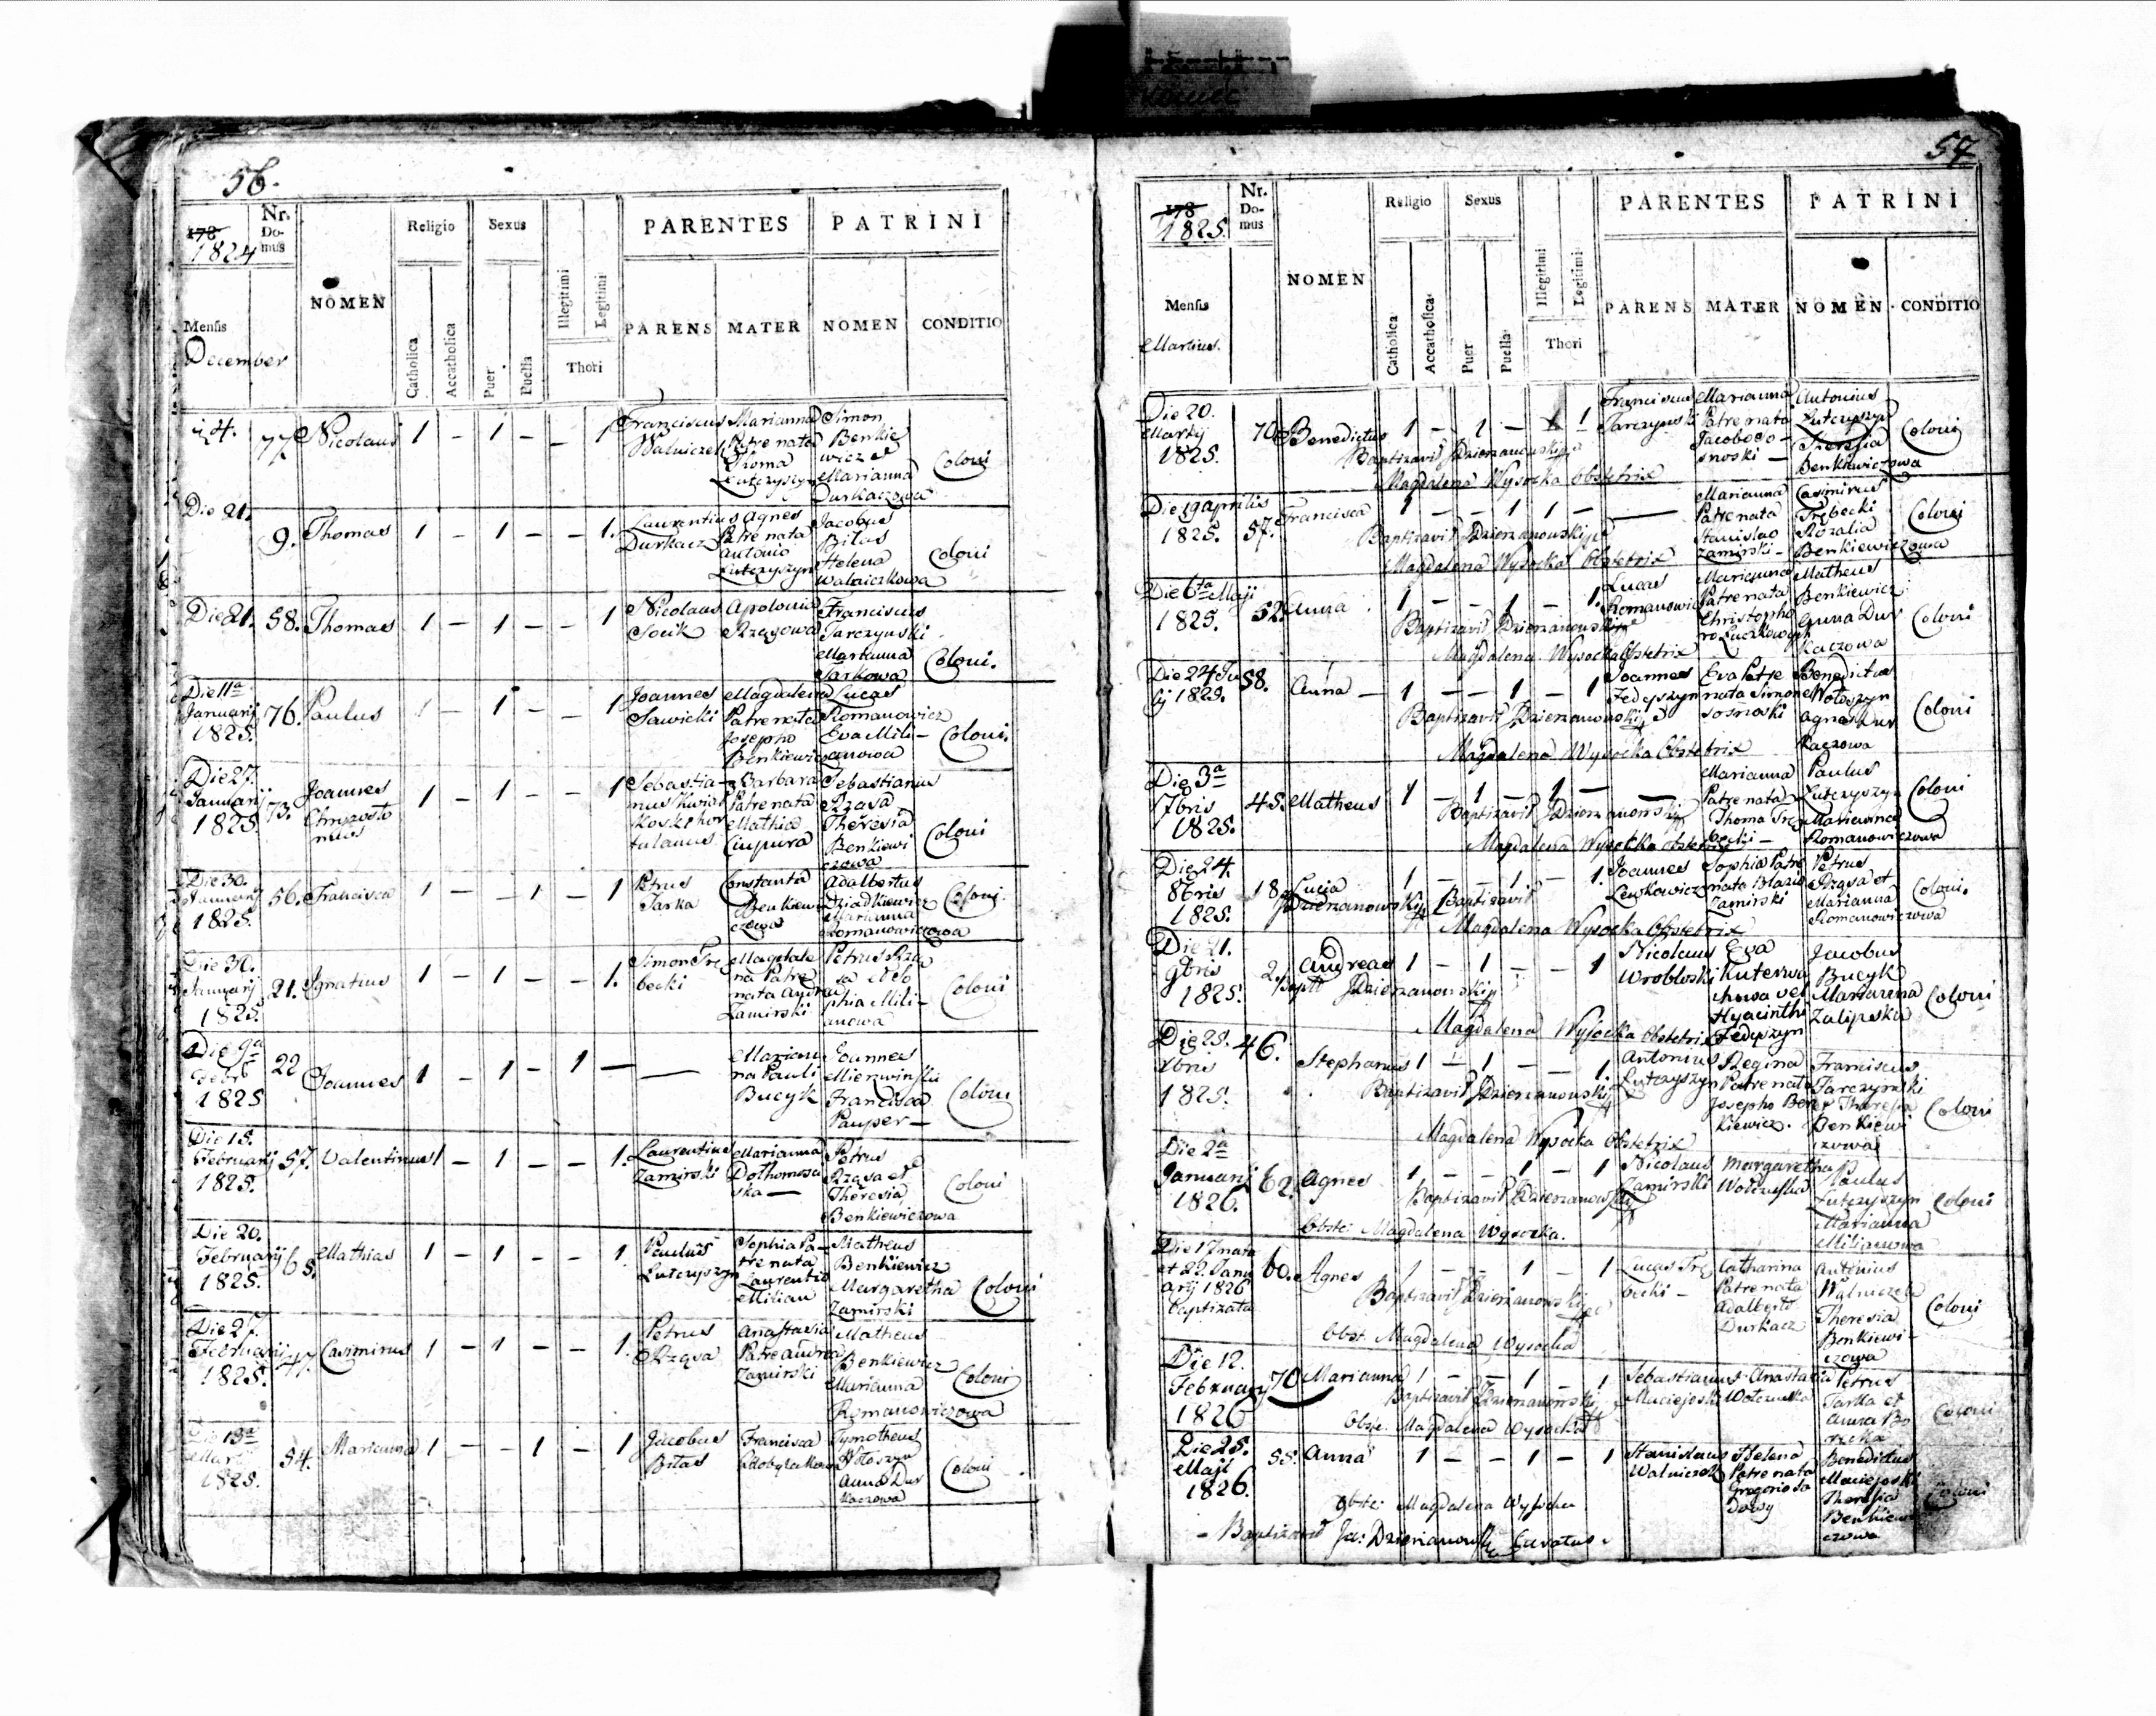 56.
178
1824
Nr. Do- mus
NOMEN
Religio
Sexus
PARENTES
PATRINI
Mensis
December
Catholica
Accatholica
Puer
Puella
Illegitimi
Legitimi
Thori
PARENS
MATER
NOMEN
CONDITIO
4. 77 Nicolaus 1 – 1 – – 1 Franciscus Marianna Simon
Walniczek Patre nata Benkie
Thoma wicz et
Lutczyszyn Marianna Coloni
Durkaczowa
Die 21. 9. Thomas 1 – 1 – – 1. Laurentius Agnes Jacobus
Durkacz Patre nata Bilas
Antonio Helena Coloni
Lutczyszyn Walniczkowa
Die 21. 58. Thomas 1 – 1 – – 1 Nicolaus Apolonia Franciscus
Socik Rząsowa Tarczynski
Marianna
Tarkowa Coloni.
Die 11a
Januarij 76. Paulus 1 – 1 – – 1 Joannes Magdalena Lucas
1825. Sawicki Patre nata Romanowicz
Josepho Eva Mili- Coloni.
Benkiewicz anowa
Die 27.
Januarij 73. Joannes 1 – 1 – – 1 Sebastia- Barbara Sebastianus
1825 Chryzosto nus Patre nata Rząsa
mus Mathia Theresia
Ciupura Benkiewi Coloni
czowa
Die 30.
Januarij 56. Francisca 1 – – 1 – 1 Petrus Constantia Adalbertus
1825. Tarka Benkiewi Dziadkiewicz Coloni.
czowa Marianna
Romanowiczowa
Die 30.
Januarij 21. Ignatius 1 – 1 – – 1. Simon Trę Magdale Petrus Rzą
1825. becki na Patre sa et So
nata Andrea phia Mili- Coloni
Zamirski anowa
Die 9a
Febr 22 Joannes 1 – 1 – 1 – Marian Joannes
1825 na Pauli Mierzwinski
Bucyk Francisca Coloni
Pauper –
Die 15.
Februarij 57. Valentinus 1 – 1 – – 1. Laurentius Marianna Petrus
1825. Zamirski Rząsa et
ska – Theresia Coloni
Benkiewiczowa
Die 20.
Februarij 65. Mathias 1 – 1 – – 1. Paulus Sophia Pa- Matheus
1825. Lutczyszyn tre nata Benkiewicz
Laurentio Margaretha Coloni
Milian Zamirski
Die 27.
Februarij 47. Casimirus 1 – 1 – – 1. Petrus Anastasia Matheus
1825. Rząsa Patre Andrea Benkiewicz
Zamirski Marianna Coloni
Romanowiczowa
Die 13a
Mar 54. Marianna 1 – – 1 – 1 Jacobus Francisca Tymotheus
1825. Bilas Wołoszyn
Anna Dur Coloni
kaczowa
57
178
1825.
Nr. Do- mus
NOMEN
Religio
Sexus
PARENTES
PATRINI
Mensis
Martius.
Catholica
Accatholica
Puer
Puella
Illegitimi
Legitimi
Thori
PARENS
MATER
NOMEN
CONDITIO
Die 20.
Martij 70 Benedictus 1 – 1 – 1 Franciscus Marianna Antonius
1825. Tarczynski Patre nata Lutczyszyn Coloni
Jacobo So- Theresia
snoski – Benkiewiczowa
Baptizavit Dzierzanowski
Magdalena Wysocka Obstetrix
Die 19 Aprilis
1825. 57. Francisca 1 – – 1 1 – — Marianna Casimirus
Patre nata Trębecki Coloni
Stanislao Rozalia
Zamirski – Benkiewiczowa
Baptizavit Dzierzanowski
Magdalena Wysocka Obstetrix
Die 6ta Maji
1825. 52. Anna 1 – – 1 – 1. Lucas Marianna Matheus
Romanowicz Patre nata Benkiewicz
Christopho Anna Dur Coloni
ro kaczowa
Baptizavit Dzierzanowski
Magdalena Wysocka Obstetrix
Die 24 Ju
lij 1825. 58. Anna – 1 – – 1 – 1 Joannes Eva Patre Benedictus
Fedyszyn nata Simone Wołoszyn
Sosnoski Agnes Dur Coloni
kaczowa
Baptizavit Dzierzanowski
Magdalena Wysocka Obstetrix
Die 3a
7bris 45. Matheus 1 – 1 – 1 – — Marianna Paulus
1825. Patre nata Lutczyszyn Coloni
Thoma Trę Marianna
becki – Romanowiczowa
Baptizavit Dzierzanowski
Magdalena Wysocka Obstetrix
Die 24.
8bris 18. Lucia 1 – – 1 – 1. Joannes Sophia Patre Petrus
1825. Lewkowicz nata Blasio Rząsa et Coloni.
Zamirski Marianna
Romanowiczowa
Dzierzanowski Baptizavit
Magdalena Wysocka Obstetrix
Die 21.
9bris 2. Andreas 1 – 1 – – 1 Nicolaus Eva Jacobus
1825. Wrobloski Bucyk
vel Marianna Coloni
Hyacinthi Zalipska
Fedyszyn
Bapt Dzierzanowski
Magdalena Wysocka Obstetrix
Die 25. 46.
Xbris Stephanus 1 – 1 – – 1. Antonius Regina Franciscus
1825. Lutczyszyn Patre nata Tarczynski
Josepho Ben Theresia Coloni
kiewicz. Benkiewi
czowa
Baptizavit Dzierzanowski
Magdalena Wysocka Obstetrix
Die 2a
Januarij 62. Agnes 1 – – 1 – 1 Nicolaus Margaretha Paulus
1826. Zamirski Lutczyszyn Coloni
Marianna
Milianowa
Baptizavit Dzierzanowski
Obste: Magdalena Wysocka.
Die 17 nata
et 22. Janu 60. Agnes 1 – – 1 – 1 Lucas Trę Catharina Antonius
arij 1826 becki – Patre nata Walniczek
baptizata Adalberto Theresia Coloni
Durkacz Benkiewi-
czowa
Baptizavit Dzierzanowski
Obst. Magdalena Wysocka
Die 12.
Februarij 70 Marianna 1 – – 1 – 1 Sebastianus Anastasia Petrus
1826 Maciejoski Tarka et
Anna Coloni
Baptizavit Dzierzanowski
Obste. Magdalena Wysocka
Die 25.
Maji 55. Anna 1 – – 1 – 1 Stanislaus Helena Benedictus
1826. Walniczek Patre nata Maciejoski
Gregorio Sa Theresia Coloni
dowy Benkiewi
czowa
Obste: Magdalena Wysocka
– Baptizavit Dzierzanowski Curatus